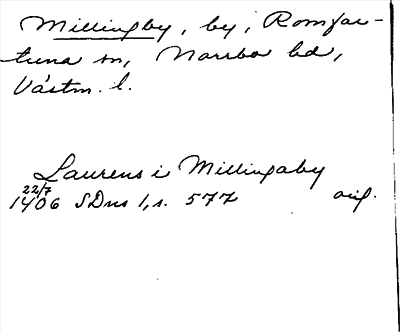 Millingby, by, i Romfar-
tuna sn, Norrbo hd,
Västm. l.
Laurens i Millingaby
22/7
1406 SDns 1, s. 577 orig.